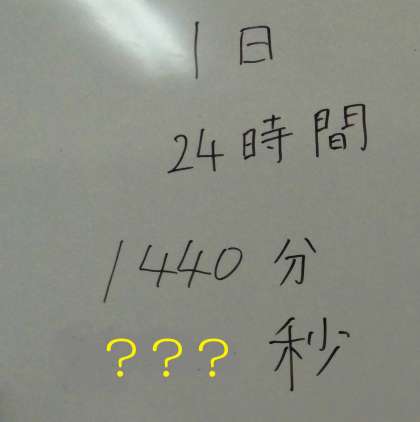 1日
24時間
1440分
???秒